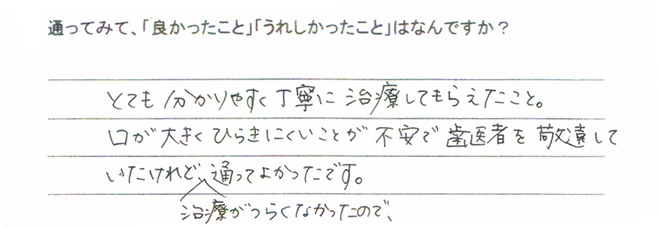 通ってみて、「良かったこと」「うれしかったこと」はなんですか？
とても分かりやすく丁寧に治療してもらえたこと。
口が大きくひらきにくいことが不安で歯医者を敬遠して
いたけれど、通ってよかったです。
治療がつらくなかったので、